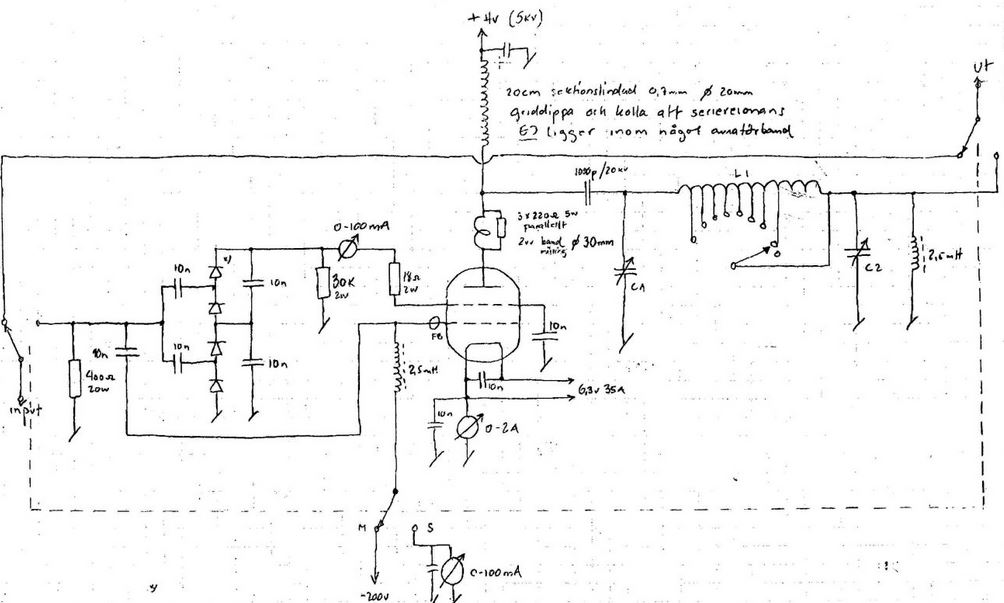 + HV (5KV)
Ut
20cm sektionslindad 0,7mm ø 20mm
griddippa och kolla att serieresonans
EJ ligger inom något amatörband
1000p/20kv
L1
3x220Ω 5w
parallellt
2vv band
ø 30mm
0-100mA
10n
x)
10n
30K
2w
18Ω
2w
2,5mH
C1
C2
10n
FB
10n
400Ω
20w
10n
10n
10n
2,5mH
10n
6,3v 35A
input
10n
0-2A
M
S
0-100mA
-200v